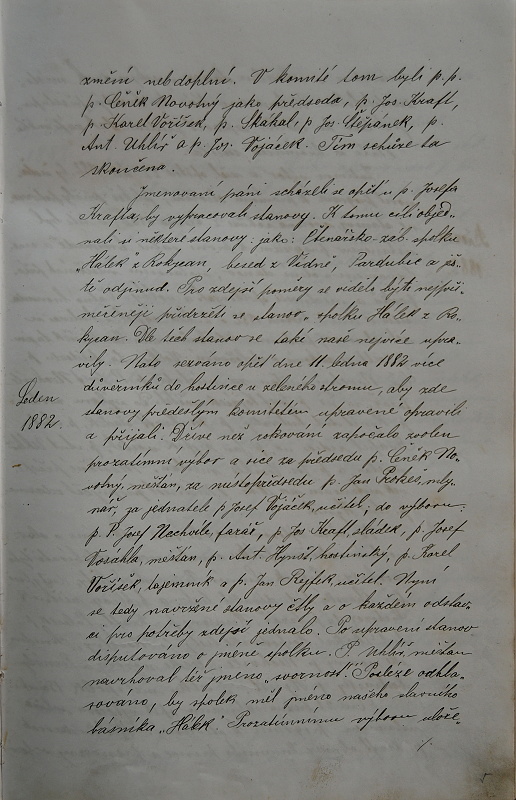 změní neb doplní. V komité tom byli p.p.
p. Čeněk Novotný jako předseda, p. Jos. Kraft,
p. Karel Voříšek, p. Skákal, p. Jos. Štěpánek, p.
Ant. Uhlíř a p. Jos. Vojáček. Tím schůze ta
skončena.
Jmenovaní páni scházeli se opět u p. Josefa
Krafta, by vypracovali stanovy. K tomu cíli objed-
nali si některé stanovy: jako: Čtenářsko-záb. spolku
„Hálek" z Rokycan, besed z Vídně, Pardubic a ješ-
tě odjinud. Pro zdejší poměry se vidělo býti nejpři-
měřeněji přidržeti se stanov „spolku Hálek z Ro-
kycan. Dle těch stanov se také naše nejvíce upra-
vily. Nato svoláno opět dne 11. ledna 1882 více
důvěrníků do hostince u zeleného stromu, aby zde
stanovy předešlým komitétem upravené opravili
a přijali. Dříve než rokování započalo zvolen
prozatímní výbor a sice za předsedu p. Čeněk No-
votný, měšťan, za místopředsedu p. Jan Prokeš, mly-
nář, za jednatele p. Josef Vojáček, učitel; do výboru:
p. P. Josef Nechvíle, farář, p. Jos. Kraft, sládek, p. Josef
Vosáhla, měšťan, p. Ant. Hynšt, hostinský, p. Karel
Voříšek, tajemník a p. Jan Rejfek, učitel. Nyní
se tedy navržené stanovy četly a o každém odstav-
ci pro potřeby zdejší jednalo. Po upravení stanov
disputováno o jméno spolku. P. Uhlíř, měšťan
navrhoval též jméno „svornost". Posléze odhla-
sováno, by spolek měl jméno našeho slavného
básníka „Hálek". Prozatímnímu výboru ulože-
Leden
1882.